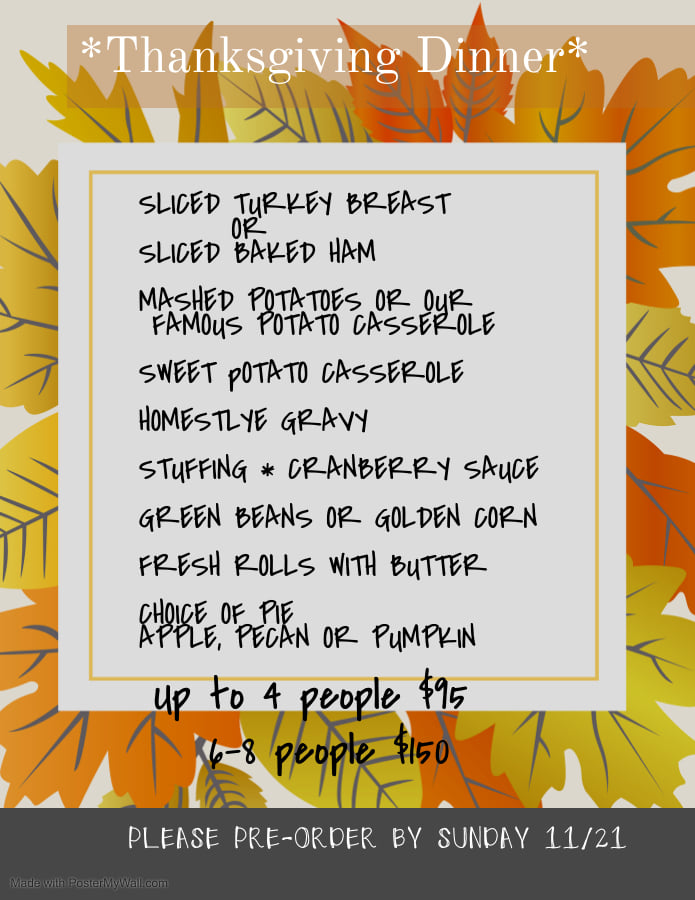 *Thanksgiving Dinner*
SLICED TURKEY BREAST
OR
SLICED BAKED HAM
MASHED POTATOES OR OUR
FAMOUS POTATO CASSEROLE
SWEET POTATO CASSEROLE
HOMESTLYE GRAVY
STUFFING * CRANBERRY SAUCE
GREEN BEANS OR GOLDEN CORN
FRESH ROLLS WITH BUTTER
CHOICE OF PIE
APPLE, PECAN OR PUMPKIN
Up to 4 people $95
6-8 people $150
PLEASE PRE-ORDER BY SUNDAY 11/21
Made with PosterMyWall.com